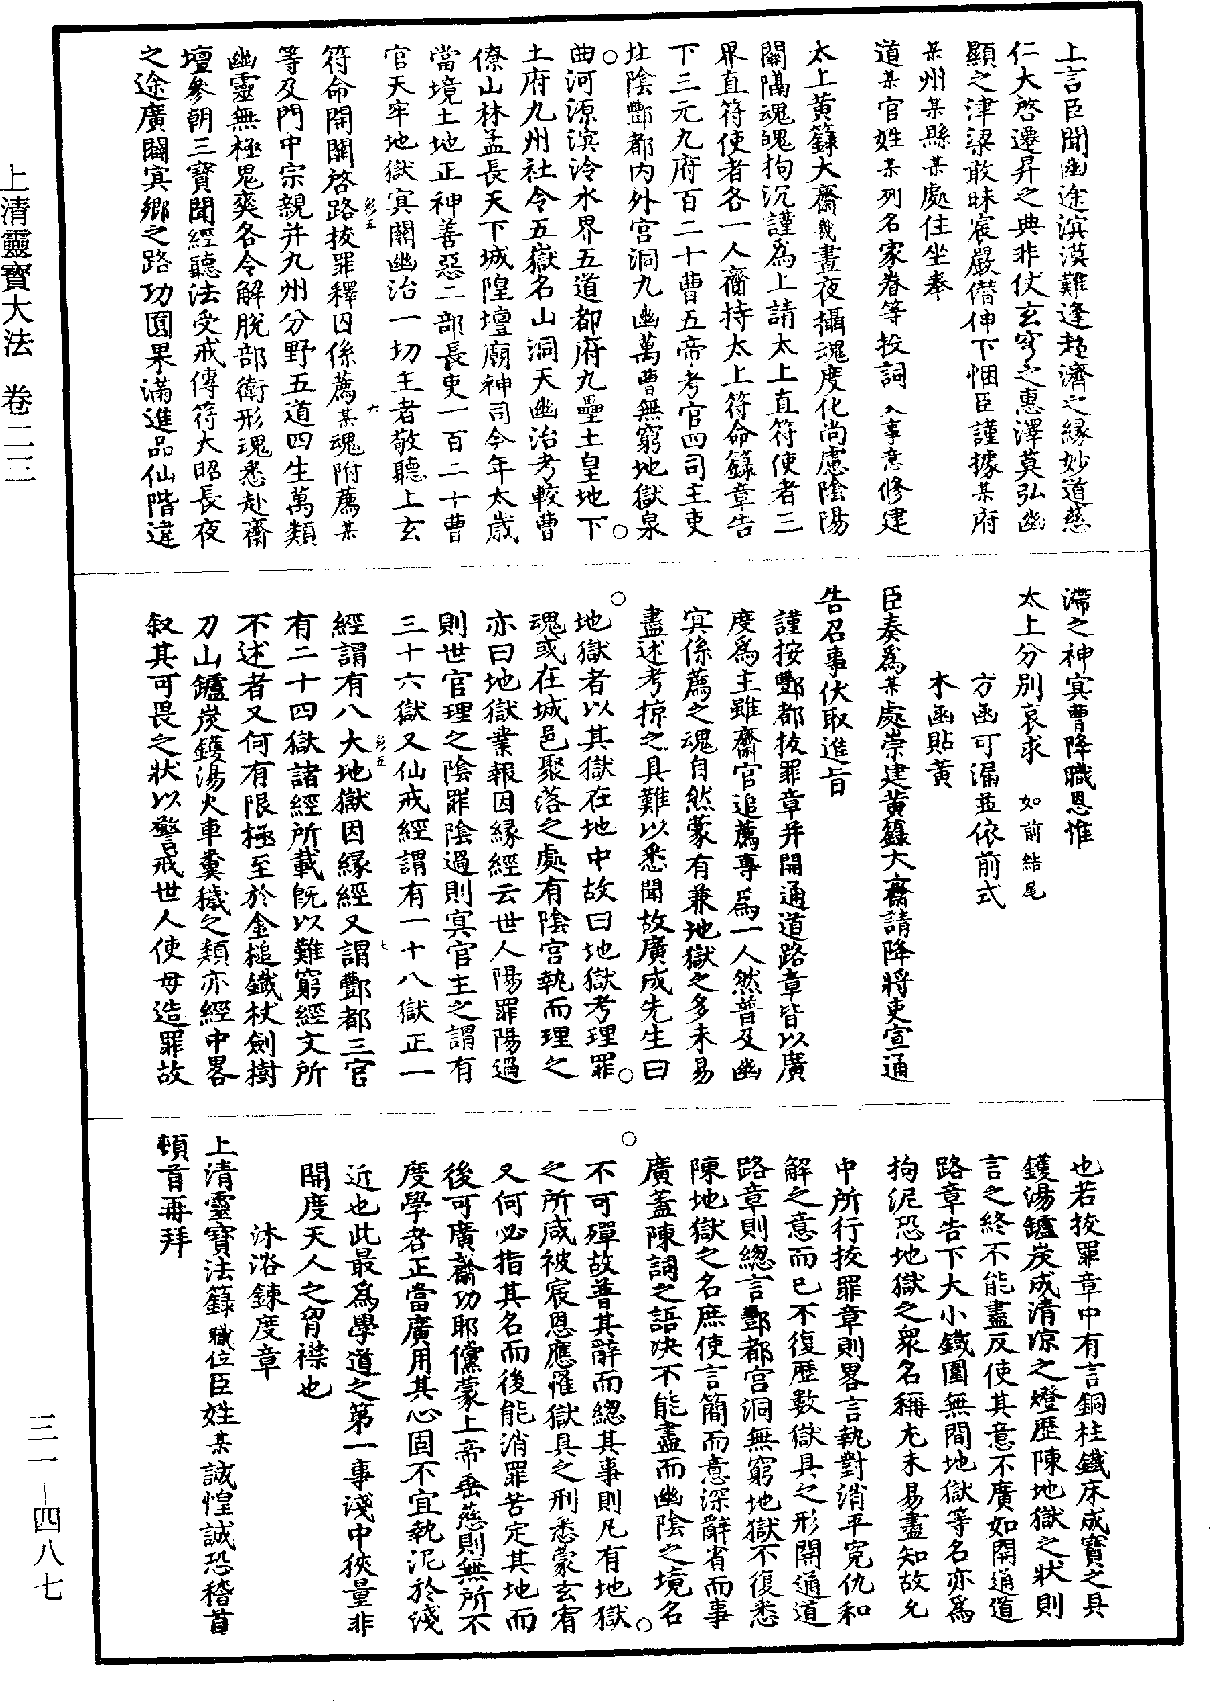 上言臣聞幽途溟漠難逢拯濟之緣妙道慈
仁大啓遷昇之典非仗玄穹之惠澤莫弘幽
顯之津梁敢昧宸嚴僭伸下悃臣謹據某府
某州某縣某處住坐奉
道某官姓某列名家眷等投詞入事意修建
太上黃籙大齋幾晝夜攝魂度化尚慮陰陽
關隔魂魄拘沉謹爲上請太上直符使者三
界直符使者各一人齎持太上符命籙章告
下三元九府百二十曹五帝考官四司主吏
北陰酆都內外宮洞九幽萬曹無窮地獄泉
曲河源溟泠水界五道都府九壘土皇地下
土府九州社令五嶽名山洞天幽治考較曹
僚山林孟長天下城隍壇廟神司今年太歲
當境土地正神善惡二部長吏一百二十曹
官天牢地獄冥關幽治一切主者敬聽上玄
符命開關啓路拔罪釋囚係薦某魂附薦某
等及門中宗親并九州分野五道四生萬類
幽靈無極鬼爽各令解脫部衛形魂悉赴齋
壇參朝三寶聞經聽法受戒傳符大昭長夜
之途廣闢冥鄉之路功圓果滿進品仙階違
滯之神冥曹降職恩惟
太上分別哀求　如前結尾
方函可漏並依前式
本函貼黃
臣奏爲某處崇建黃籙大齋請降將吏宣通
告召事伏取進旨
謹按酆都拔罪章并開通道路章皆以廣
度爲主雖齋官追薦專爲一人然普及幽
冥係薦之魂自然蒙有兼地獄之多未易
盡述考掠之具難以悉聞故廣成先生曰
地獄者以其獄在地中故曰地獄考理罪
魂或在城邑聚落之處有陰宮執而理之
亦曰地獄業報因緣經云世人陽罪陽過
則世官理之陰罪陰過則冥官主之謂有
三十六獄又仙戒經謂有一十八獄正一
經謂有八大地獄因緣經又謂酆都三官
有二十四獄諸經所載既以難窮經文所
不述者又何有限極至於金槌鐵杖劍樹
刀山鑪炭鑊湯火車糞穢之類亦經中畧
敍其可畏之狀以警戒世人使毋造罪故
也若拔罪章中有言銅柱鐵床成寶之具
鑊湯鑪炭成清凉之燈歷陳地獄之狀則
言之終不能盡反使其意不廣如開通道
路章告下大小鐵圍無間地獄等名亦爲
拘泥恐地獄之衆名稱尤未易盡知故允
中所行拔罪章則畧言執對消平寃仇和
解之意而已不復歷數獄具之形開通道
路章則總言酆都宮洞無窮地獄不復悉
陳地獄之名庶使言簡而意深辭省而事
廣蓋陳詞之語決不能盡而幽陰之境名
不可殫故普其辭而總其事則凡有地獄
之所咸被宸恩應罹獄具之刑悉蒙玄宥
又何必指其名而後能消罪苦定其地而
後可廣齋功耶儻蒙上帝垂慈則無所不
度學者正當廣用其心固不宜執泥於淺
近也此最爲學道之第一事淺中狹量非
開度天人之胷襟也
沐浴鍊度章
上清靈寶法籙職位臣姓某誠惶誠恐稽首
頓首再拜
上清靈寶大法　卷二二
三一－四八七